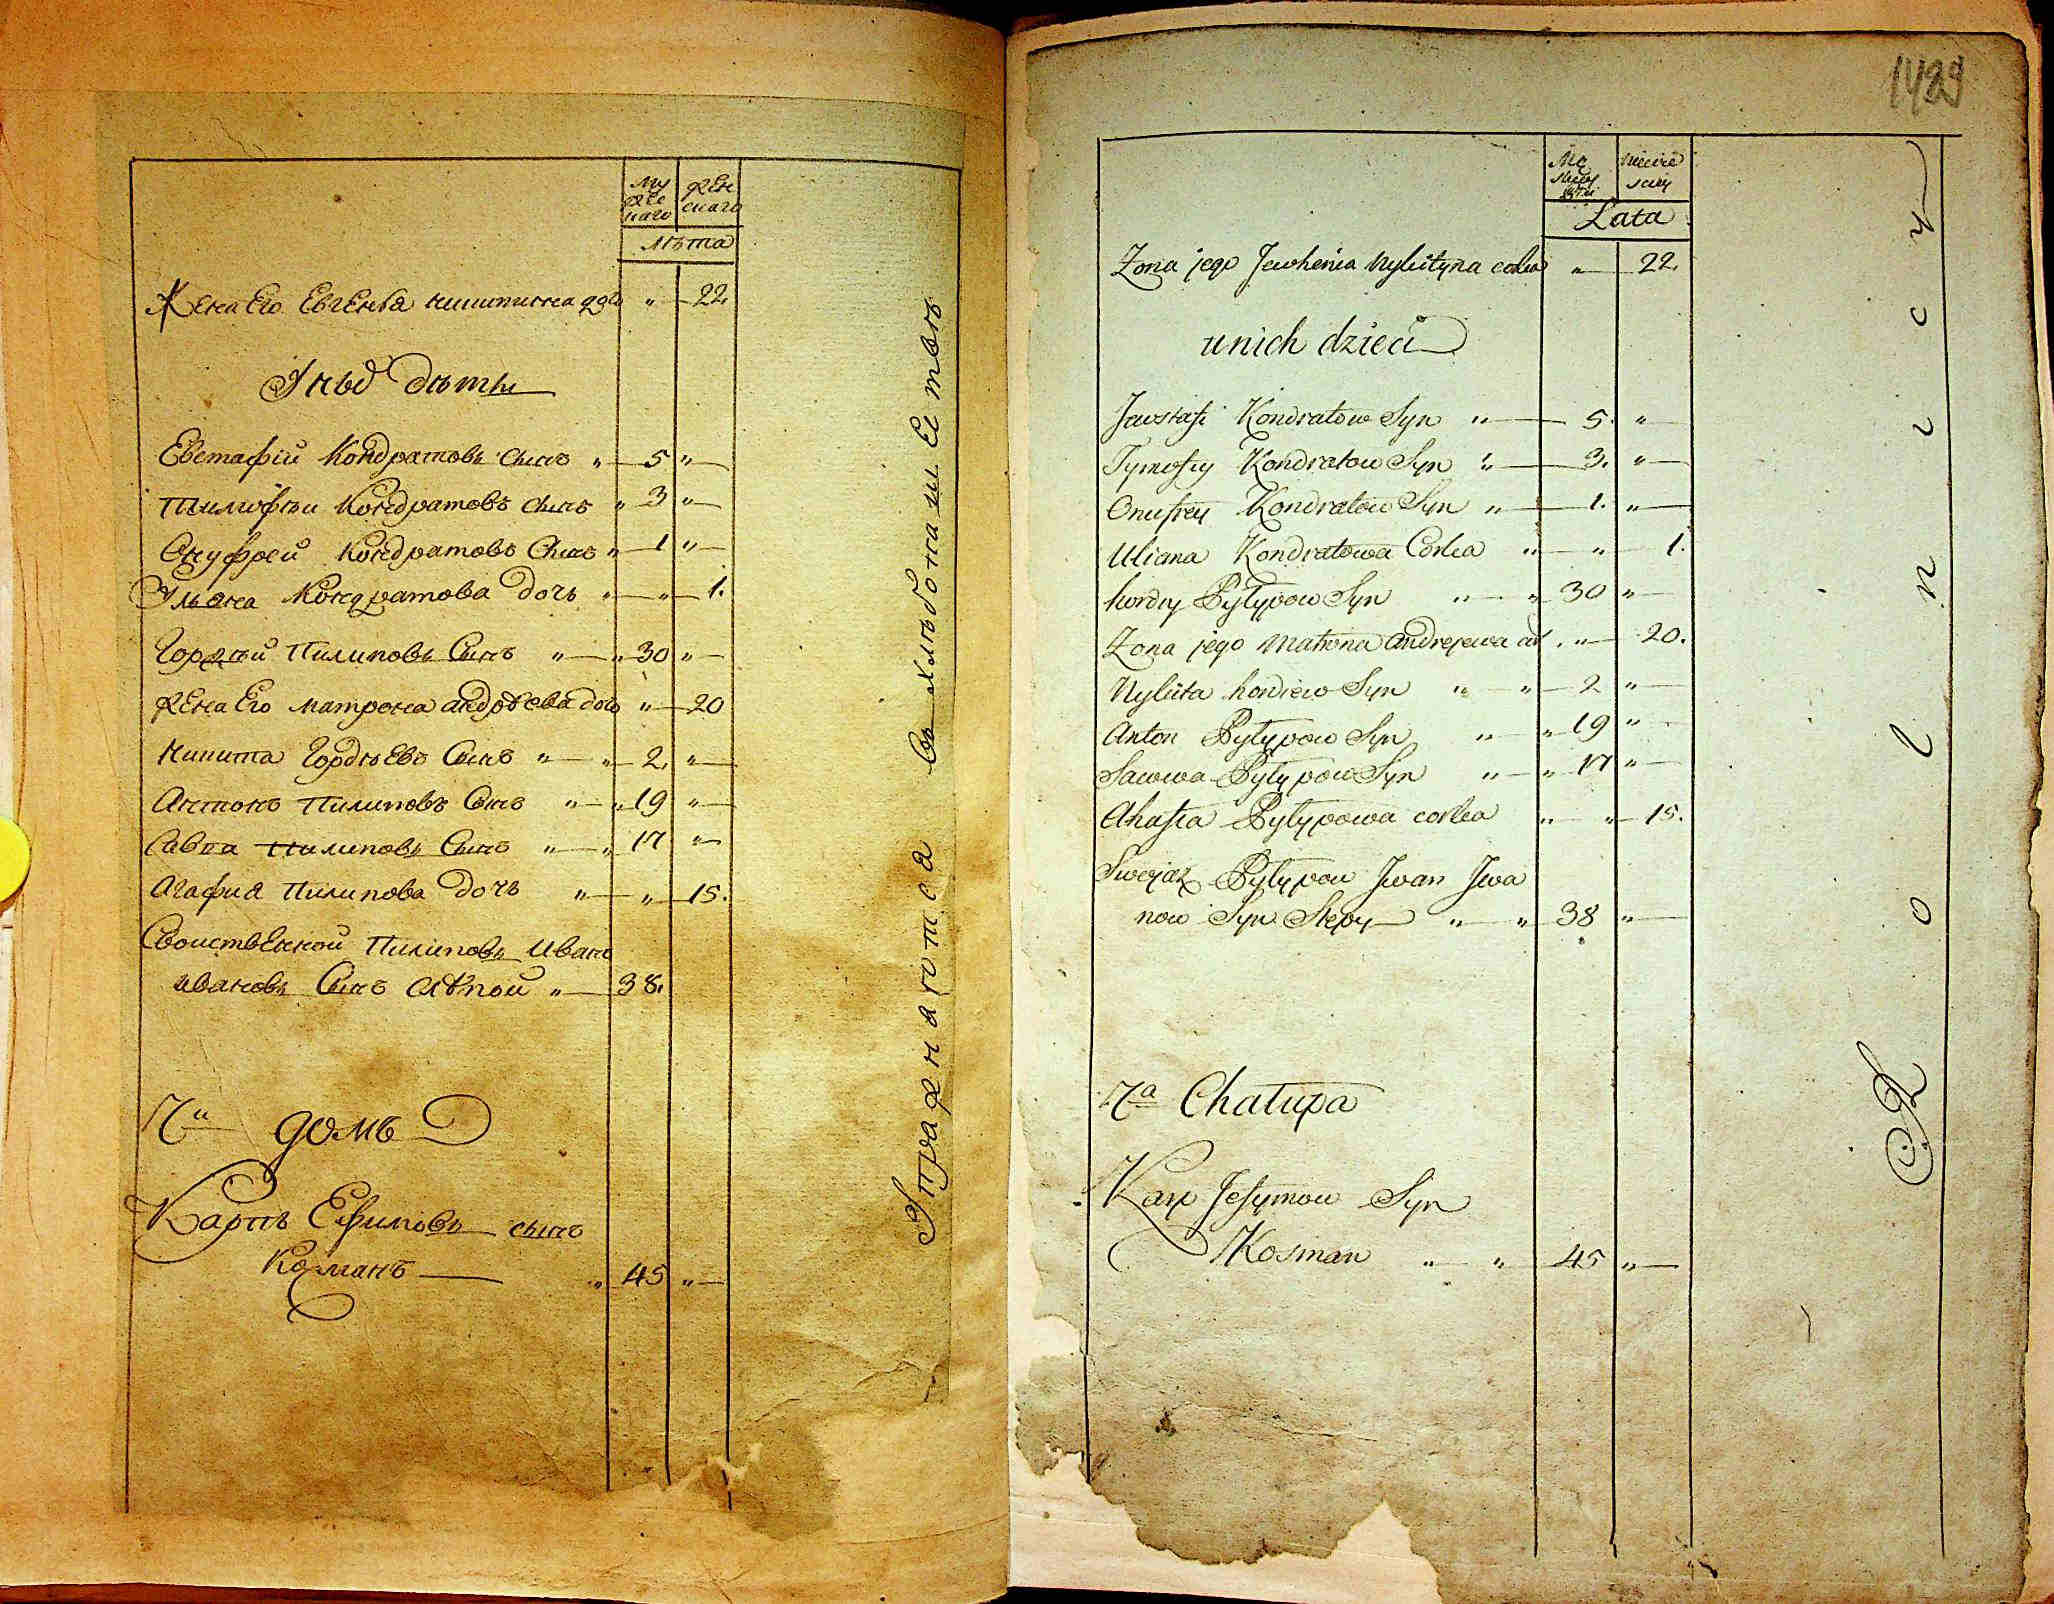 Му
же
наго
жен
снаго
лѣта
Жена Его Евгенья никитина доч " — 22.
У нихъ дѣти
Евстафій Кондратовъ сынъ " — 5 " —
Тимофѣи Кондратовъ сынъ " 3 " —
Онуфрей Кондратовъ Сынъ " — 1 " —
Ульяна Кондратова дочь " — " — 1.
Гордѣй Пилиповъ Сынъ " — " 30 " —
жена Его матрона андреева доч " — 20
Никита Гордѣевъ Сынъ " — " 2. " —
Антонъ Пилиповъ Сынъ " — " 19 " —
Савва Пилиповъ Сынъ " — " 17 " —
Агафия Пилипова дочь " — " — 15.
Свойственной Пилиповъ Иванъ
ивановъ Сынъ слѣпой " — 38.
7й домъ
Карпъ Ефимовъ сынъ
Козманъ — " 45 " —
Упражнаются въ хлѣбопашествѣ
1429
Lata
Zona jego Jewhenia Nykityna corka " — 22.
u nich dzieci
Jewstafi Kondratow Syn " — 5. " —
Tymofiy Kondratow Syn " — 3. " —
Onufrey Kondratow Syn " — 1. " —
Uliana Kondratowa Corka " — " — 1.
hordiy Pyłypow Syn " — " 30 " —
Zona jego Matrona andrejewa cor. " — 20.
Nykita hordiew Syn " — " — 2 " —
Anton Pyłypow Syn " — " 19 " —
Sawwa Pyłypow Syn " — " 17 " —
Ahafia Pyłypowa corka " — " — 15.
Swojak Pyłypow Jwan Jwa
now Syn Slepy — " — " 38 " —
7a Chałupa
Karp Jefymow Syn
Kosman " — " 45 " —
Rolnicy